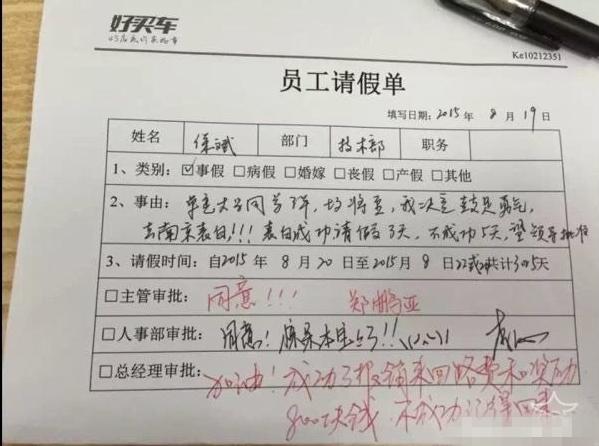 好买车
Ke10212351
员工请假单
填写日期：2015 年 8 月 19 日
姓名 徐斌 部门 技术部 职务
1、类别：☑事假 □病假 □婚嫁 □丧假 □产假 □其他
2、事由： 单恋大学同学3年，均将至，我决定鼓足勇气，
去南京表白！！！表白成功请假3天，不成功5天，望领导批准
3、请假时间：自2015 年 8 月 20 日至2015月 8 日22或24共计3或5天
□主管审批： 同意！！！ 郑鹏亚
□人事部审批： 同意！
□总经理审批： 加油！成功了报销来回路费和奖励
800块钱，不成功记得回来